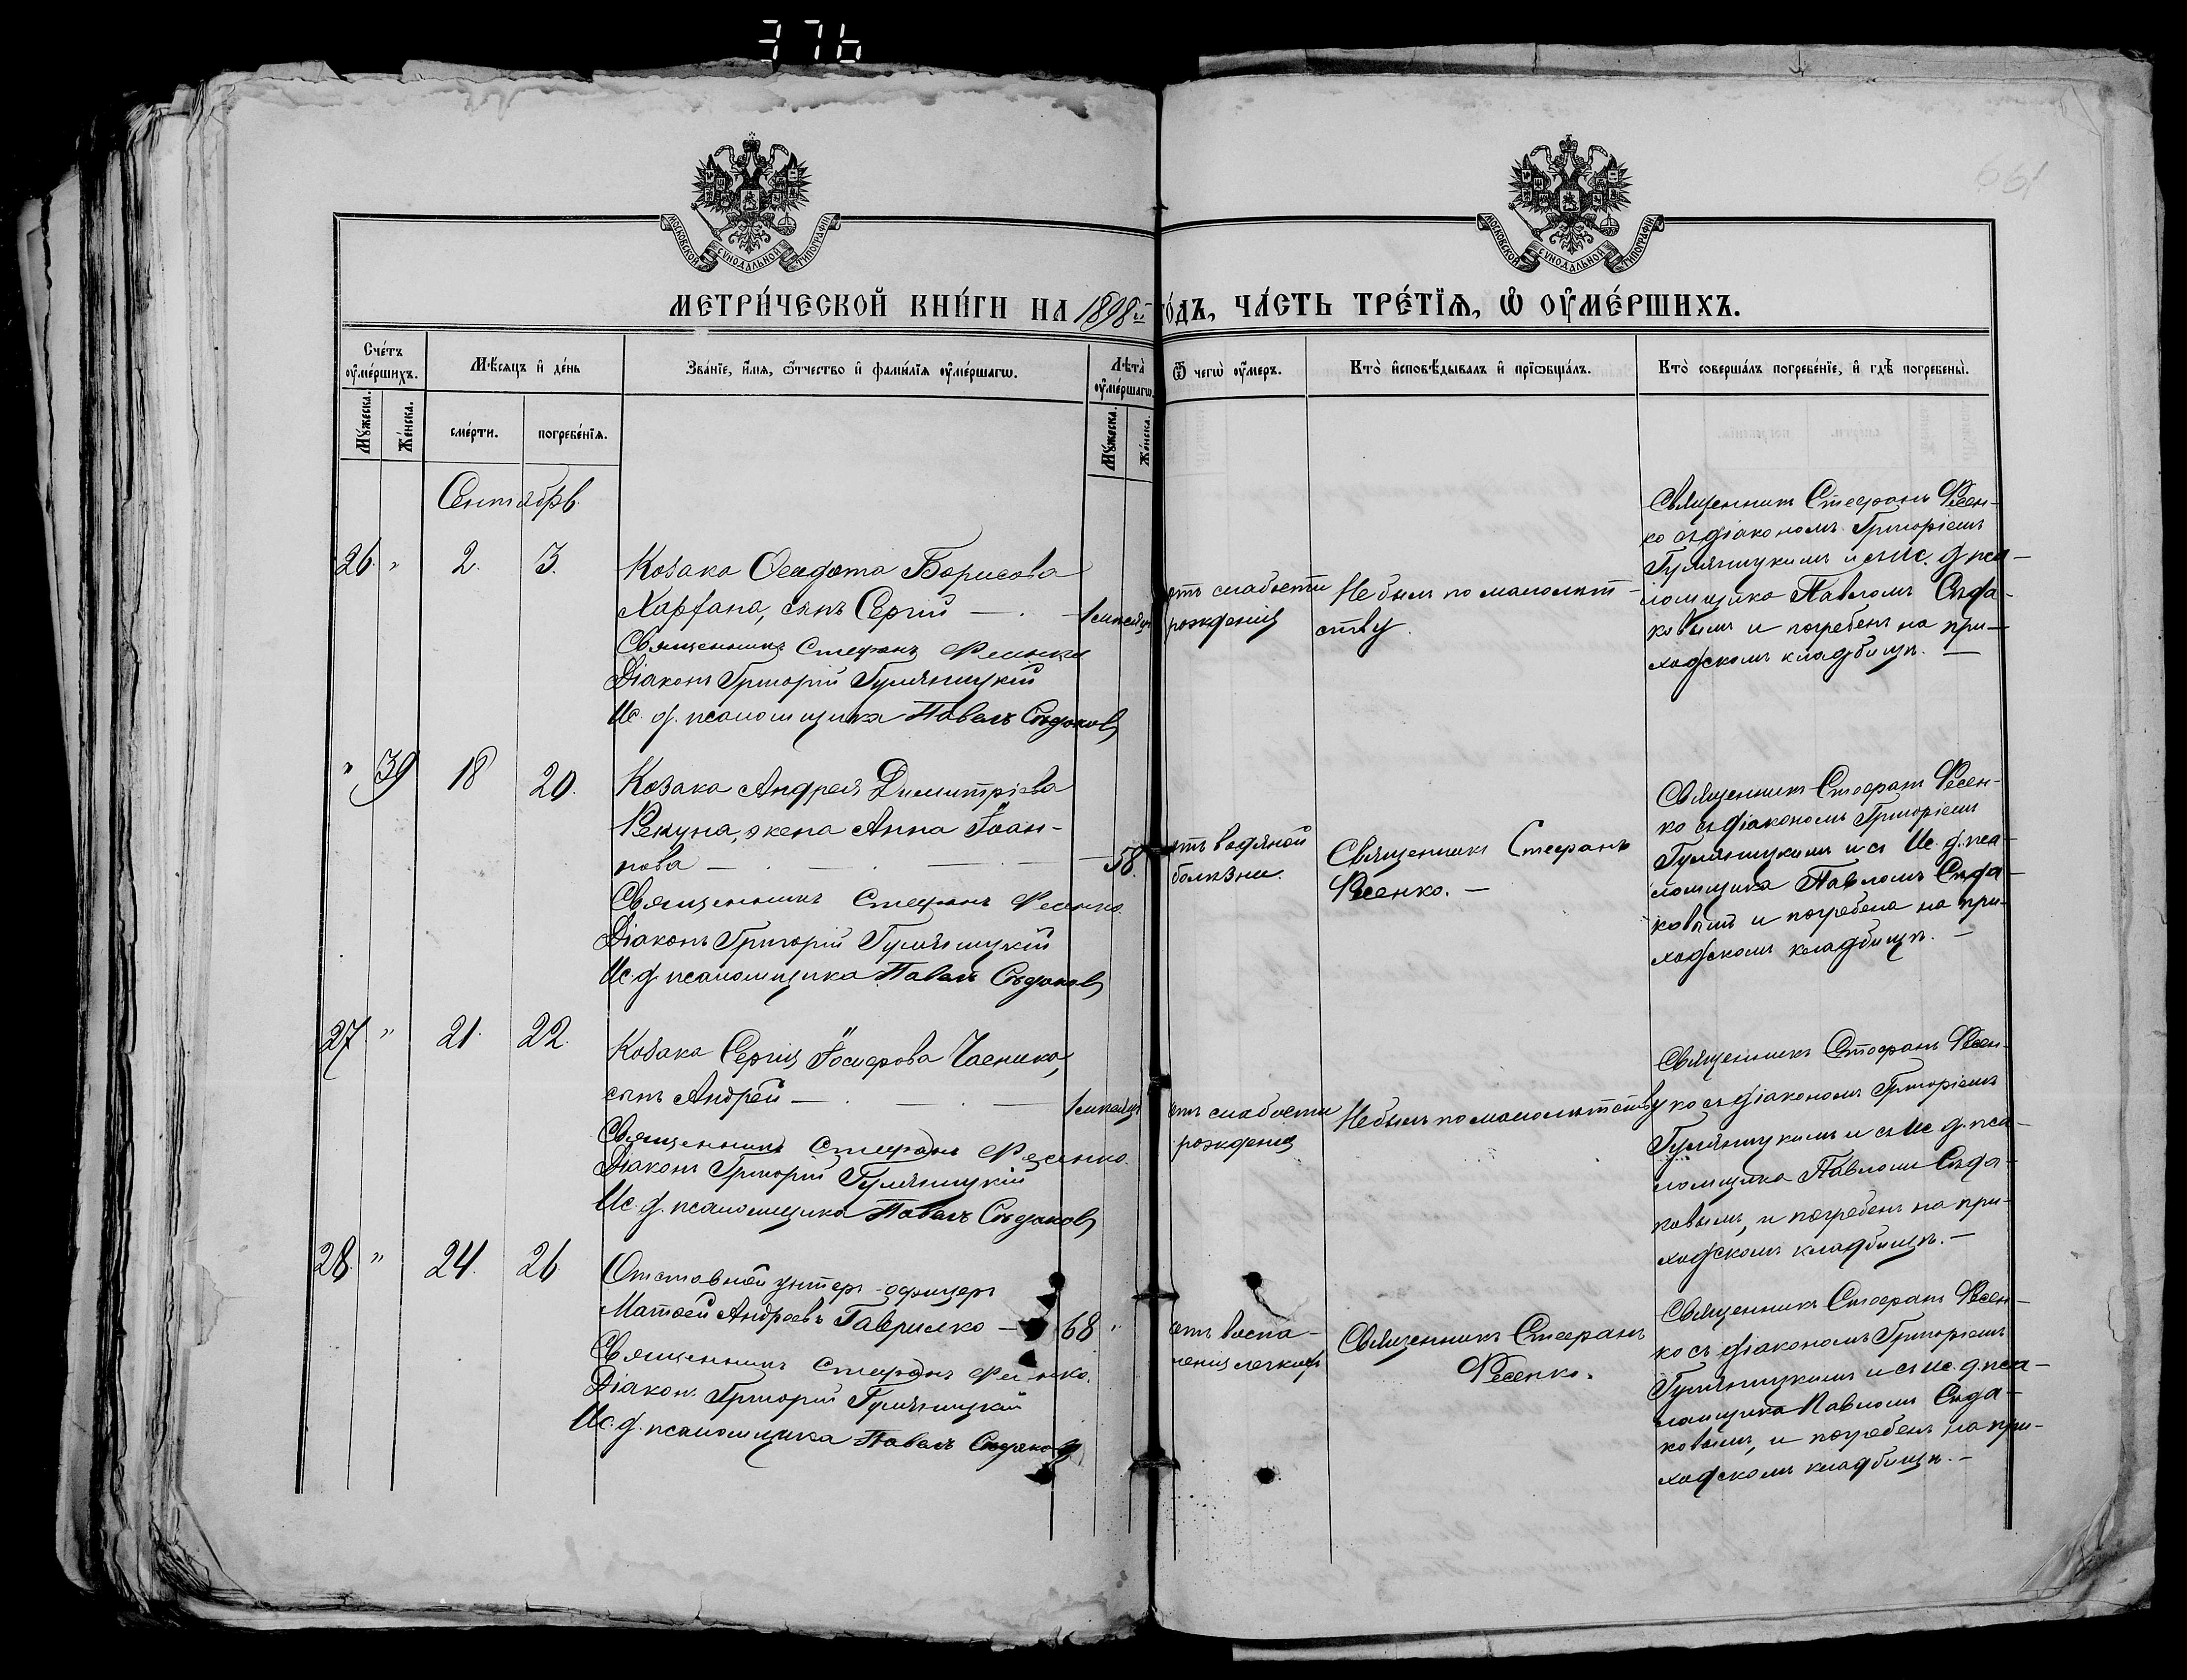 376
661
МОСКОВСКОЙ СУНОДАЛЬНОЙ ТИПОГРАФІИ
МОСКОВСКОЙ СУНОДАЛЬНОЙ ТИПОГРАФІИ
МЕТРИ́ЧЕСКОЙ КНИ́ГИ НА 1898й ГО́ДЪ, ЧА́СТЬ ТРЕ́ТЇѦ, Ѡ҆ ОУ҆МЕ́РШИХЪ.
Сче́тъ оу҆ме́ршихъ.
Мѣ́сяцъ и҆ де́нь
Зва́нїе, и҆́мя, ѻ҆́тчество и҆ фами́лїя оу҆ме́ршагѡ.
Лѣ́та оу҆ме́ршагѡ.
Ѿ чегѡ̀ оу҆́меръ.
Кто̀ и҆сповѣ́дывалъ и҆ прїѡбща́лъ.
Кто̀ соверша́лъ погребе́нїе, и҆ гдѣ̀ погребены̀.
Му́жеска.
Же́нска.
сме́рти.
погребе́нїя.
Му́жеска.
Же́нска.
Сентябрь
26. " 2. 3.
Козака Ѳеодота Борисова
Харѳана, сынъ Сергій — 1 мѣсяцъ
Священникъ Стефанъ Фесенко
Діаконъ Григорій Гуляницкій
Ис. д. псаломщика Павелъ Сѣдаковъ
отъ слабости
рожденія
Не былъ по малолѣт-
ству.
Священникъ Стефанъ Фесен-
ко съ діакономъ Григоріемъ
Гуляницкимъ и съ ис. д. пса-
ломщика Павломъ Сѣда-
ковымъ и погребенъ на при-
ходскомъ кладбищѣ. —
" 39 18 20.
Козака Андрея Димитріева
Рекуна, жена Анна Іоан-
нова — 58.
Священникъ Стефанъ Фесенко.
Діаконъ Григорій Гуляницкій
Ис. д. псаломщика Павелъ Сѣдаковъ
отъ водяной
болѣзни.
Священникъ Стефанъ
Фесенко. —
Священникъ Стефанъ Фесен-
ко съ діакономъ Григоріемъ
Гуляницкимъ и съ Ис. д. пса-
ломщика Павломъ Сѣда-
ковымъ и погребена на при-
ходскомъ кладбищѣ. —
27 " 21. 22.
Козака Сергія Іосифова Чаенка,
сынъ Андрей — 1 мѣсяцъ
Священникъ Стефанъ Фесенко.
Діаконъ Григорій Гуляницкій
Ис. д. псаломщика Павелъ Сѣдаковъ
отъ слабости
рожденія
Не былъ по малолѣтству
Священникъ Стефанъ Фесен-
ко съ діакономъ Григоріемъ
Гуляницкимъ и съ ис. д. пса-
ломщика Павломъ Сѣда-
ковымъ, и погребенъ на при-
ходскомъ кладбищѣ. —
28. " 24. 26
Отставной унтеръ-офицеръ
Матѳей Андреевъ Гаврилко — 68 "
Священникъ Стефанъ Фесенко.
Діаконъ Григорій Гуляницкій
Ис. д. псаломщика Павелъ Сѣдаковъ
отъ воспа-
ленія легкихъ
Священникъ Стефанъ
Фесенко.
Священникъ Стефанъ Фесен-
ко съ діакономъ Григоріемъ
Гуляницкимъ и съ ис. д. пса-
ломщика Павломъ Сѣда-
ковымъ, и погребенъ на при-
ходскомъ кладбищѣ. —